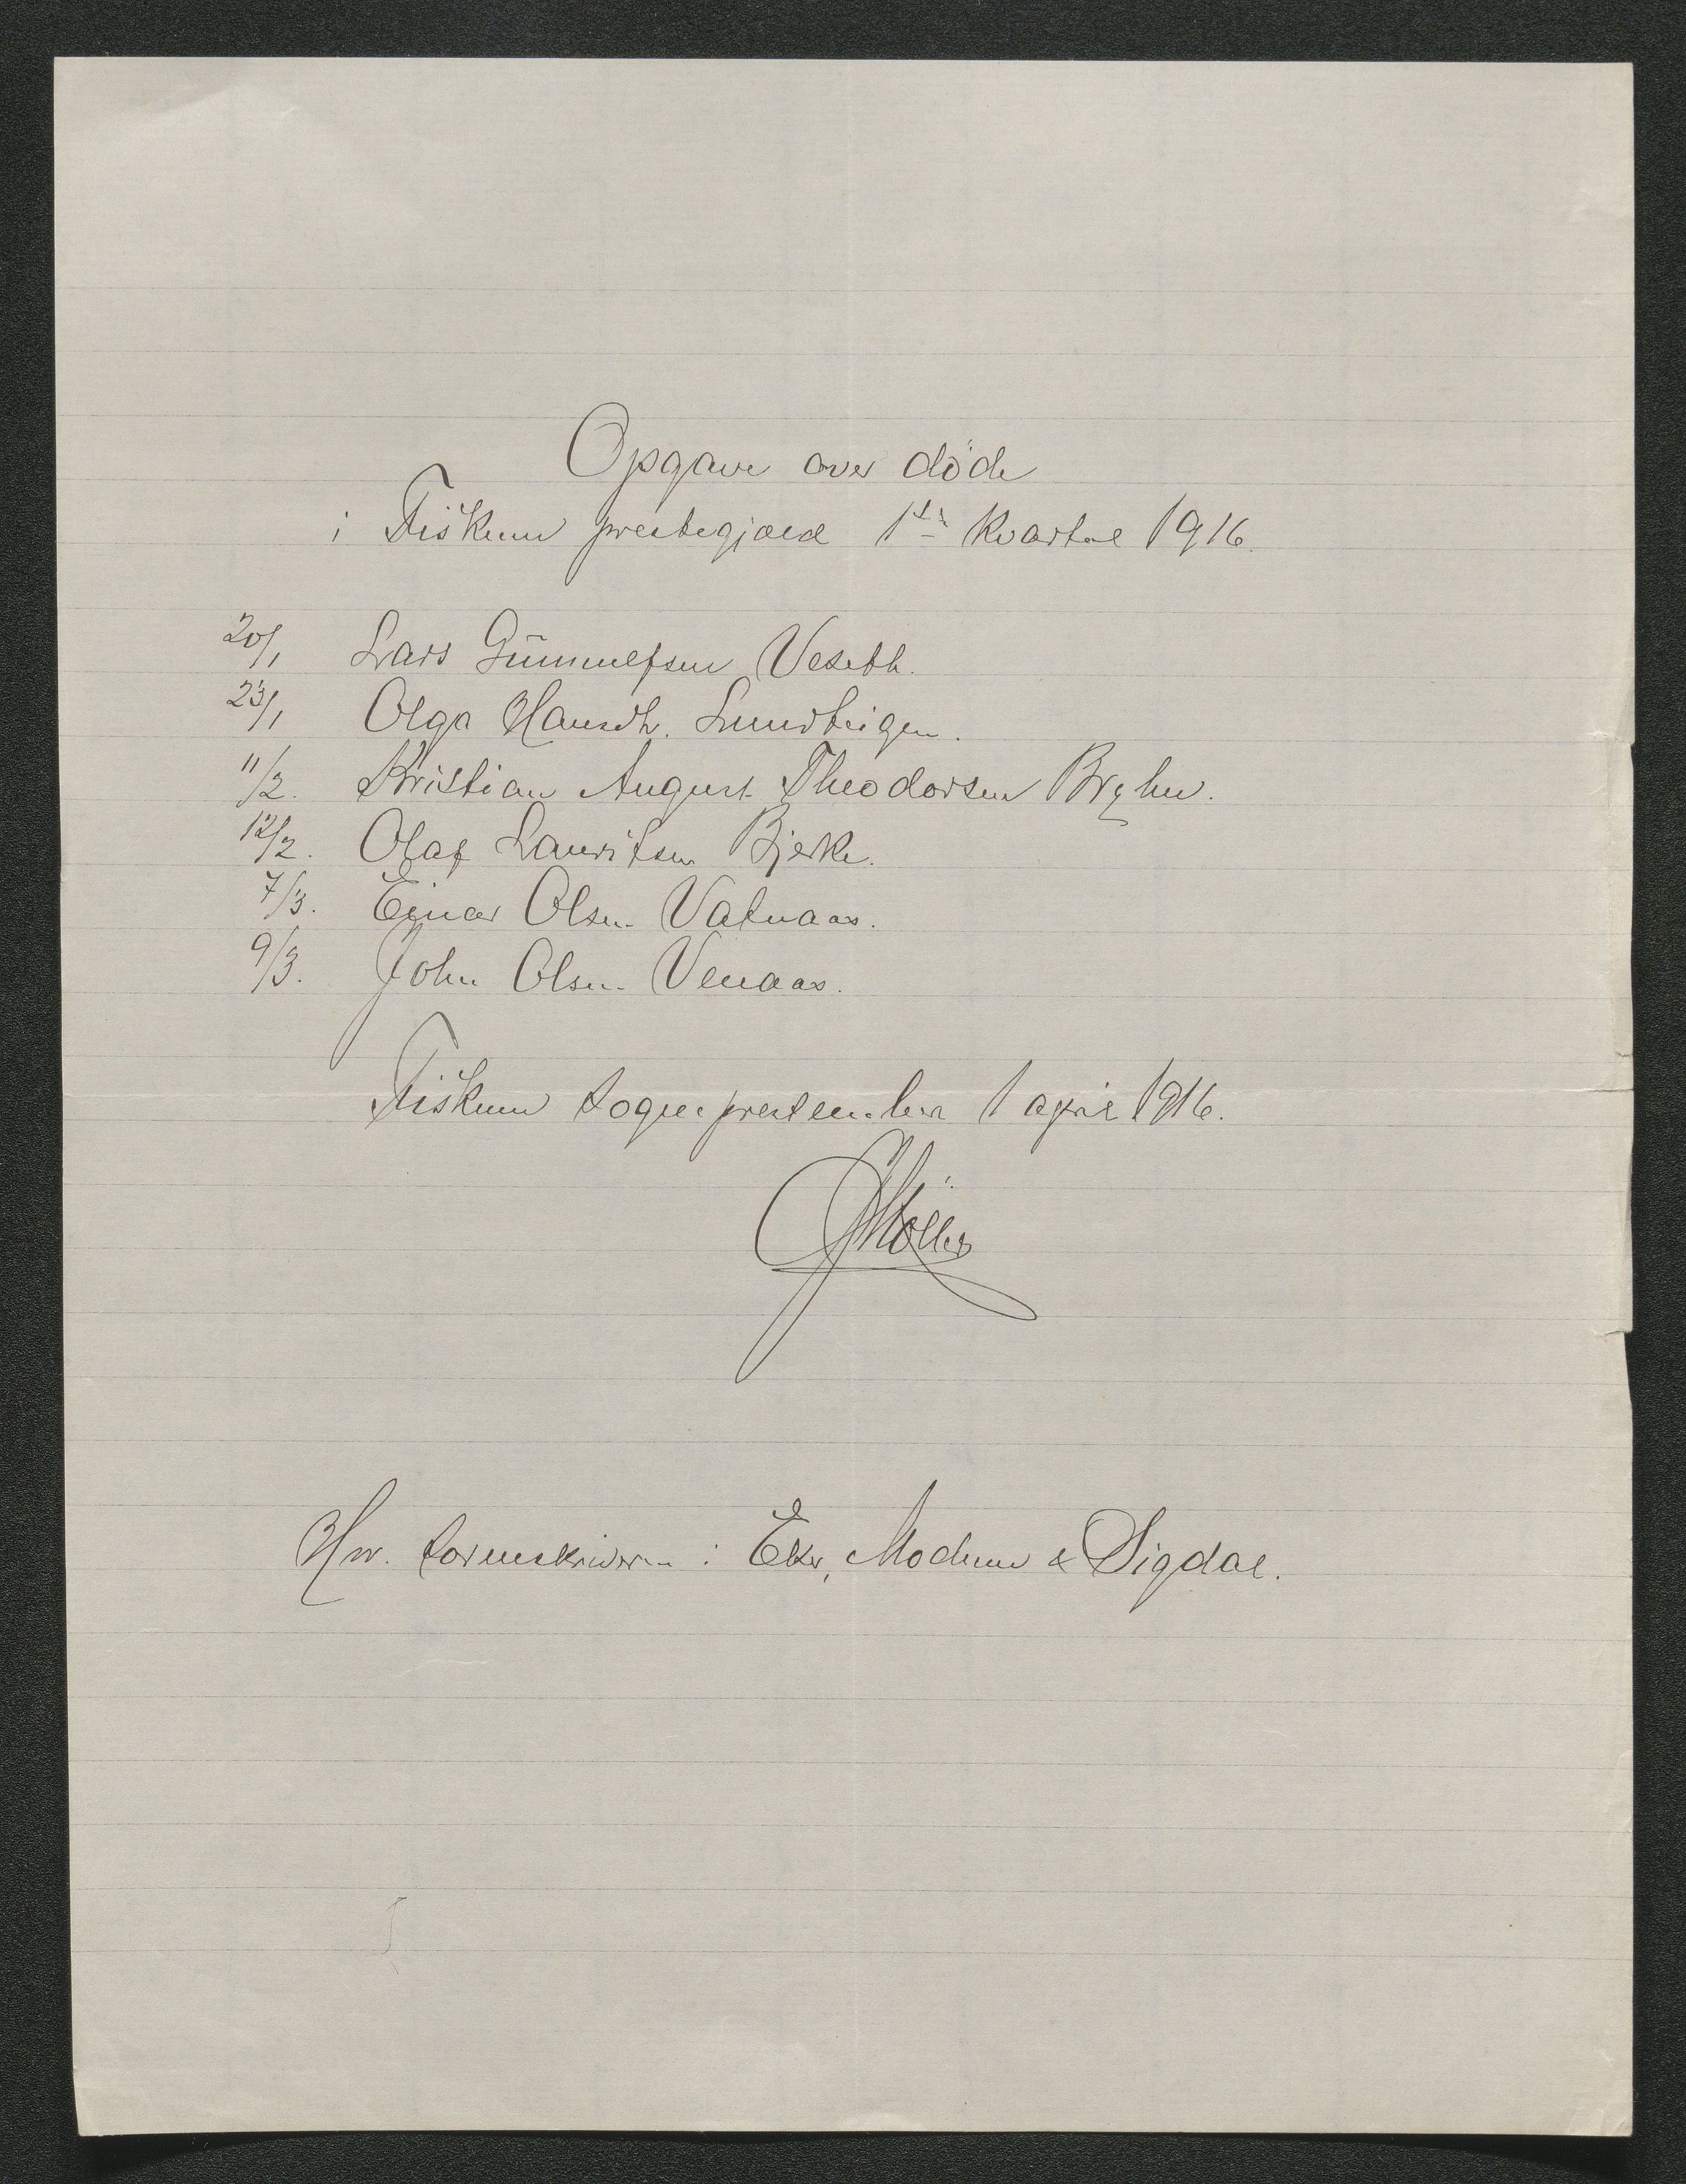 Opgave over døde
i Fiskum prestegjæld 1ste kvartal 1916.
20/1 Lars Gummelsen Veseth.
23/1 Olga Hansdtr. Lundteigen.
11/2. Kristian August Theodorsen Bryhn.
12/2. Olaf Lauritsen Bjerke.
7/3. Einar Olsen Vatnaas.
9/3. John Olsen Venaas.
Fiskum sogneprestembede 1 april 1916.
Møller
Hr. sorenskriveren i Eker, Modum & Sigdal.